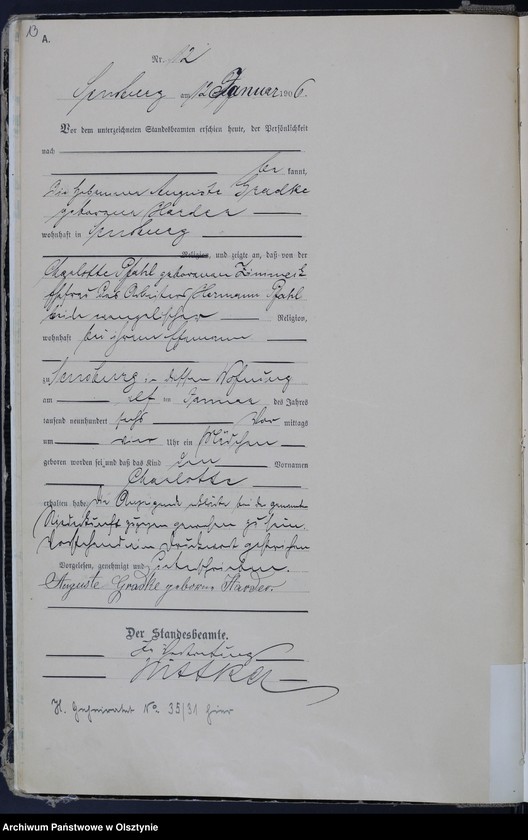 13
A.
Nr. 12
Sensburg am 12 Januar 1906.
Vor dem unterzeichneten Standesbeamten erschien heute, der Persönlichkeit
nach
be kannt,
die Hebamme Auguste Gradtke
geborene Harder
wohnhaft in Sensburg
Religion, und zeigte an, daß von der
Charlotte Pfahl geborenen
Ehefrau des Arbeiters Hermann Pfahl
beide evangelischer Religion,
wohnhaft bei ihrem Ehemann
zu Sensburg in dessen Wohnung
am elf ten Januar des Jahres
tausend neunhundert sechs Vor mittags
um vier Uhr ein Mädchen
geboren worden sei und daß das Kind den Vornamen
Charlotte
erhalten habe. Die Anzeigende erklärte bei der genannten
Niederkunft zugegen gewesen zu sein.
Vorstehend ein Druckwort gestrichen
Vorgelesen, genehmigt und unterschrieben.
Auguste Gradtke geborene Harder.
Der Standesbeamte.
In Vertretung
H. Geheiratet No 35/31 hier
Archiwum Państwowe w Olsztynie